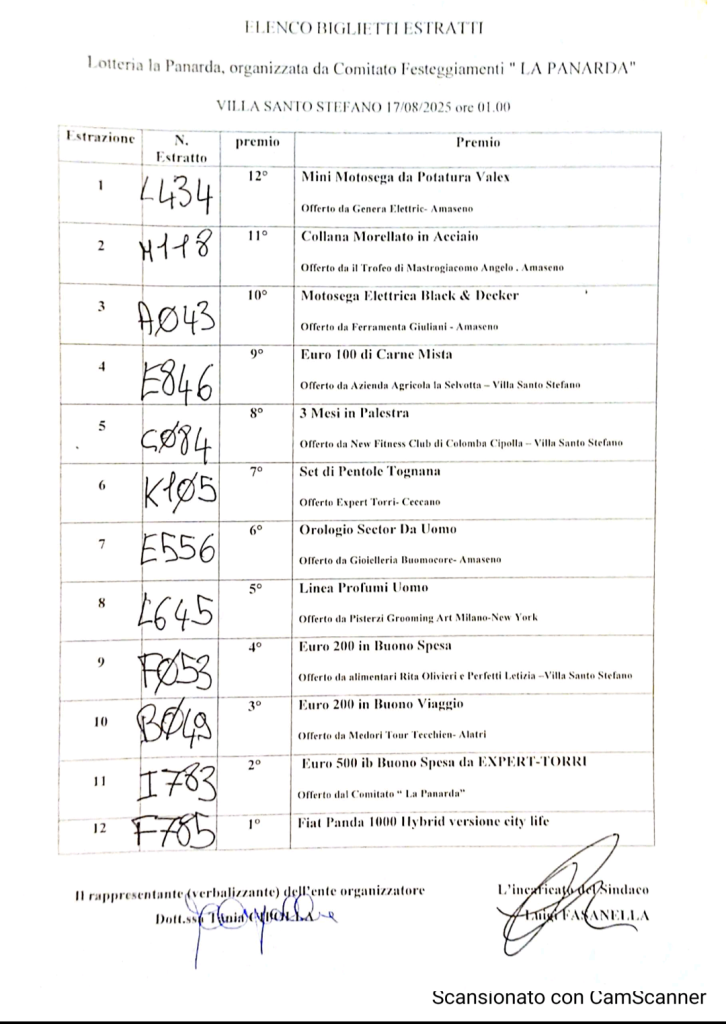 ELENCO BIGLIETTI ESTRATTI
Lotteria la Panarda, organizzata da Comitato Festeggiamenti " LA PANARDA"
VILLA SANTO STEFANO 17/08/2025 ore 01.00
Estrazione N. Estratto premio Premio
1 L434 12° Mini Motosega da Potatura Valex
Offerto da Genera Elettric- Amaseno
2 H118 11° Collana Morellato in Acciaio
Offerto da il Trofeo di Mastrogiacomo Angelo . Amaseno
3 A043 10° Motosega Elettrica Black & Decker
Offerto da Ferramenta Giuliani - Amaseno
4 E846 9° Euro 100 di Carne Mista
Offerto da Azienda Agricola la Selvotta – Villa Santo Stefano
5 G084 8° 3 Mesi in Palestra
Offerto da New Fitness Club di Colomba Cipolla – Villa Santo Stefano
6 K105 7° Set di Pentole Tognana
Offerto Expert Torri- Ceccano
7 E556 6° Orologio Sector Da Uomo
Offerto da Gioielleria Buomocore- Amaseno
8 L645 5° Linea Profumi Uomo
Offerto da Pisterzi Grooming Art Milano-New York
9 F053 4° Euro 200 in Buono Spesa
Offerto da alimentari Rita Olivieri e Perfetti Letizia –Villa Santo Stefano
10 B049 3° Euro 200 in Buono Viaggio
Offerto da Medori Tour Tecchien- Alatri
11 I783 2° Euro 500 ib Buono Spesa da EXPERT-TORRI
Offerto dal Comitato " La Panarda"
12 F785 1° Fiat Panda 1000 Hybrid versione city life
Il rappresentante (verbalizzante) dell'ente organizzatore
L'incaricato del Sindaco
Dott.ssa Tania
Luigi FASANELLA
Scansionato con CamScanner